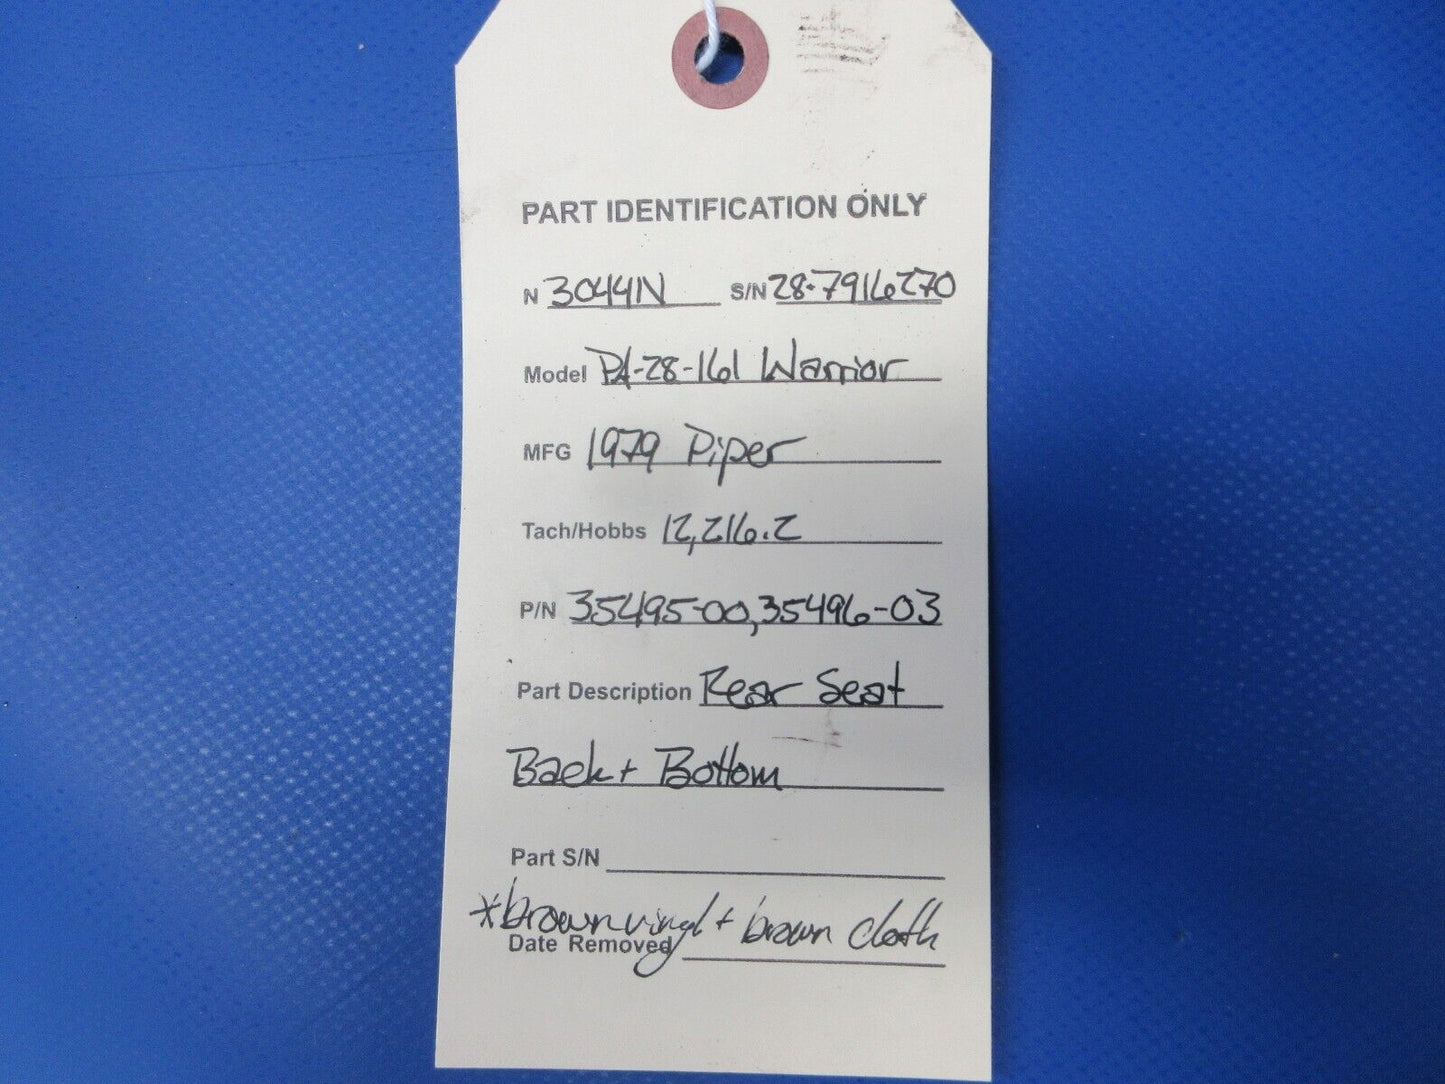 PART IDENTIFICATION ONLY
N 3044N S/N 28-7916270
Model PA-28-161 Warrior
MFG 1979 Piper
Tach/Hobbs 12,216.2
P/N 35495-00, 35496-03
Part Description Rear Seat
Back + Bottom
Part S/N
*brown vinyl + brown cloth
Date Removed